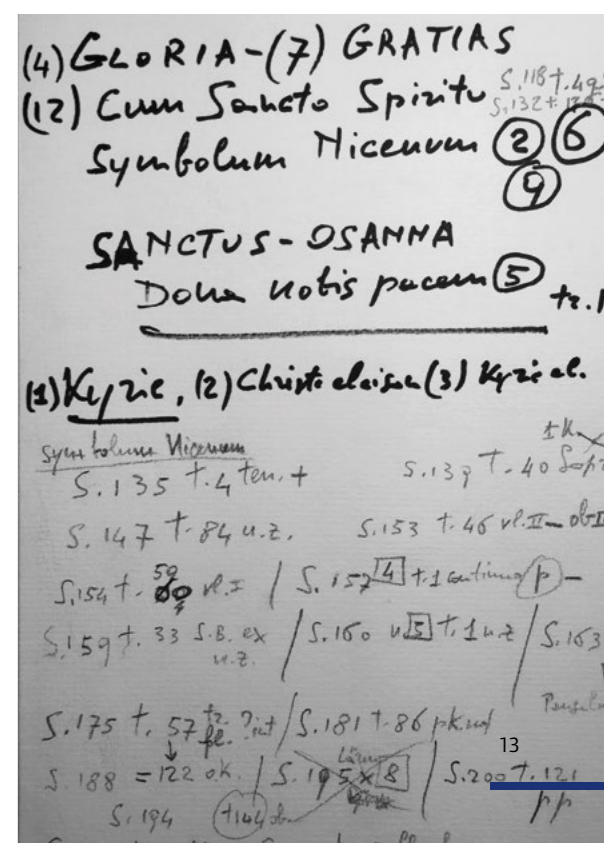 (4) GLORIA-(7) GRATIAS
(12) Cum Sancto Spiritu S.118 t.49
S.132 t.
Symbolum Nicenum ② ⑥
⑨
SANCTUS-OSANNA
Dona nobis pacem ⑤ tr.
(1) Kyrie, (2) Christe eleison (3) Kyrie el.
Symbolum Nicenum
S.135 t.4 ten. + S.139 T. 40
S.147 t.84 u.z. S.153 t.46 vl.II
S.154 t. 59 vl.I / S.157 4 t.1 continuo p -
S.159 t. 33 S.B. ex / S.160 5 t.1 u.z / S.163
u.z.
S.175 t. 57 tr. fl. / S.181 t.86 pk.
13
S.188 = 122 o.k. / S.195 x 8 / S.200 t.121
S.194 t144 pp